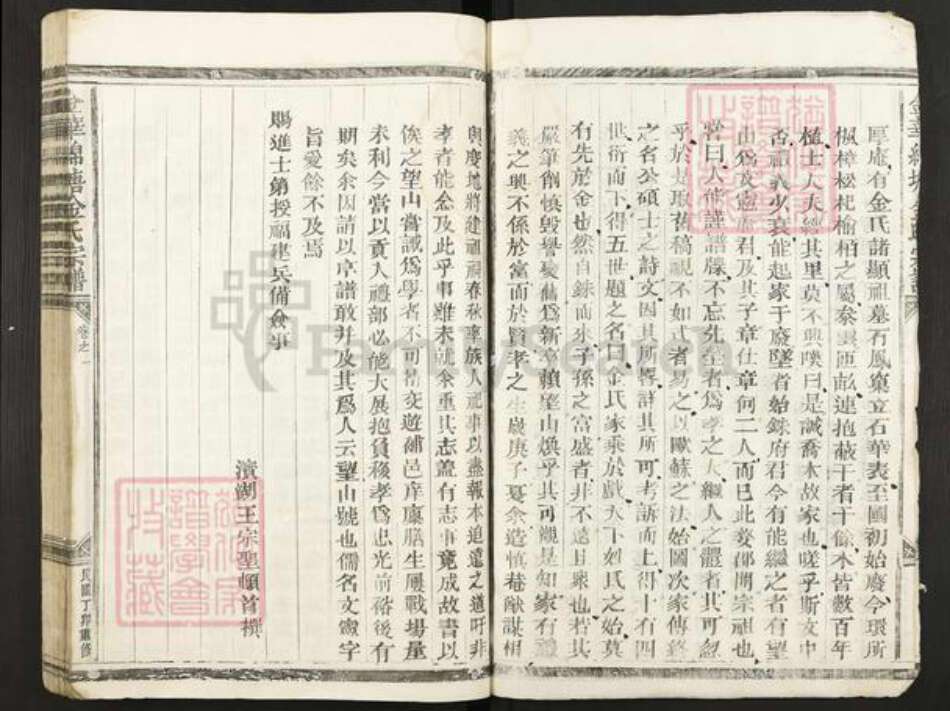 厚庵有金氏諸顯祖墓石鳳窠立石華表至國初始廢今環所
楓樟松杞榆柏之屬參雲匝畝連抱蔽干者千餘木皆數百年
植士大夫經其里莫不興嘆曰是誠喬木故家也嗟乎斯文中
否福義少衰能起家于廢墜者始銖府君今有能繼之者有望
山為友憲府君及其子章仕章何二人而已此婺郡開宗祖也
嘗曰人能謹譜牒不忘先塋者為孝之大繼人之體者其可忽
乎於是取舊稿視不如式者易之以歐蘇之法始圖次家傳終
之名公碩士之詩文因其所畧詳其所可考訴而上得十有四
世衍而下得五世題之名曰金氏家乘於戲天下姓氏之始莫
有先於金也然自銖而來子孫之富盛者非不遠且眾也若其
嚴筆削慎毀譽變舊為新卒賴望山煥乎其可觀是知家有禮
義之興不係於富而於賢孝之生歲庚子夏余造慎菴猷謀相
與慶地將建祖祠春秋率族人祀事以盡報本追遠之道吁非
孝者能念及此乎事雖未就余重其志蓋有志事竟成故書以
俟之望山嘗誡為學者不可惰交遊補邑庠廩膳生屢戰場量
未利今當以貢入禮部必能大展抱負移孝為忠光前裕後有
期矣余因請以序譜敢并及其為人云望山號也儒名文憲字
旨愛餘不及焉
賜進士第授福建兵備僉事
濱湖王宗聖頓首撰
金華綿塘金氏宗譜
卷之一
民國丁卯重修